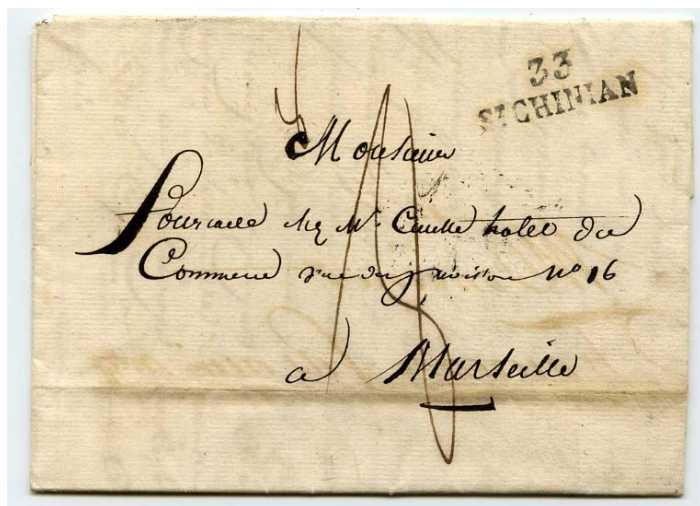 33
St CHINIAN
Monsieur
chez Mr hotel du
Commerce rue du No 16
a Marseille